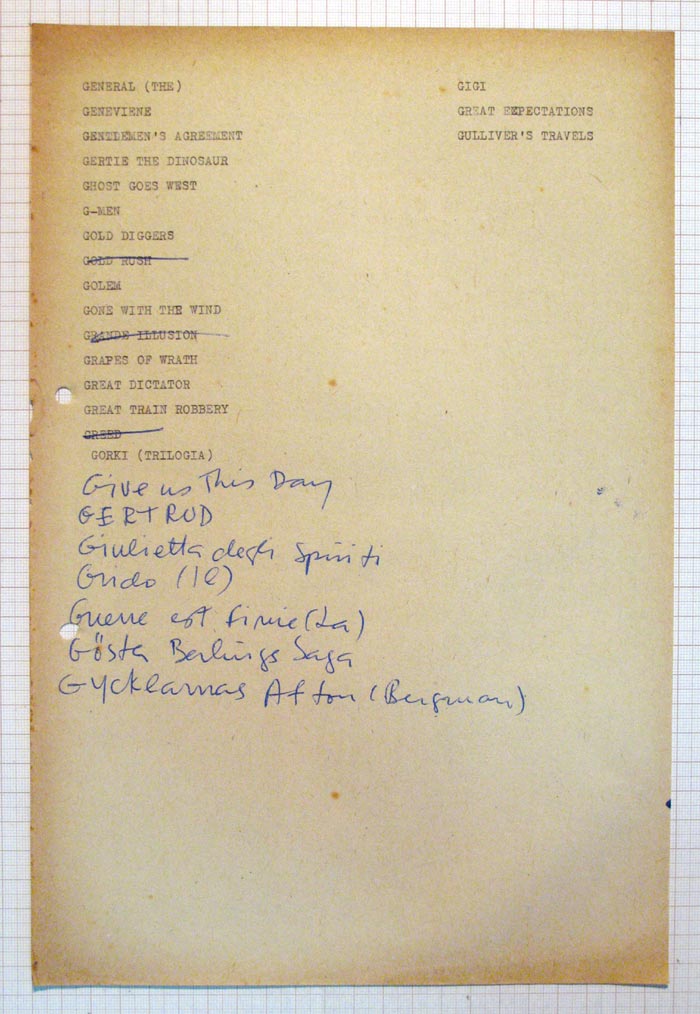 GENERAL (THE)
GENEVIENE
GENTLEMEN'S AGREEMENT
GERTIE THE DINOSAUR
GHOST GOES WEST
G-MEN
GOLD DIGGERS
GOLD RUSH
GOLEM
GONE WITH THE WIND
GRANDE ILLUSION
GRAPES OF WRATH
GREAT DICTATOR
GREAT TRAIN ROBBERY
GREED
GORKI (TRILOGIA)
Give us This Day
GERTRUD
Giulietta degli Spiriti
Grido (Il)
Guerre est finie (La)
Gösta Berlings Saga
Gycklarnas Afton (Bergman)
GIGI
GREAT EXPECTATIONS
GULLIVER'S TRAVELS